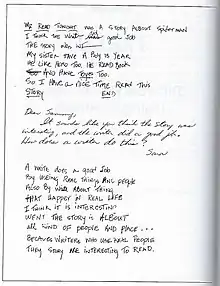 WE READ TONIGHT WAS A STORY ABOUT SPIDERMAN
I THINK THE WRITE good JOB
THE STORY NOW WE
MY SISTER HAVE A BOY IS YEAR
HE LIKE HERO TOO. HE READ BOOK
AND HAVE TOYES TOO.
SO I HAVE A NICE TIME READ THIS
STORY END
Dear Sammy,
It sounds like you think the story was
interesting, and the writer did a good job.
How does a writer do this?
Sara
A WRITE DOES A GOOD JOB
BY USEING REAL THINGS AND PEOPLE
ALSO BY ABOUT THING
THAT HAPPEN IN REAL LIFE
I THINK IT IS INTERESTING
WENT THE STORY IS ALBOUT
ALL KIND OF PEOPLE AND PLACE...
BECAUS WRITERE WHO USE REAL PEOPLE
THEY STORY ARE INTERESTING TO READ.